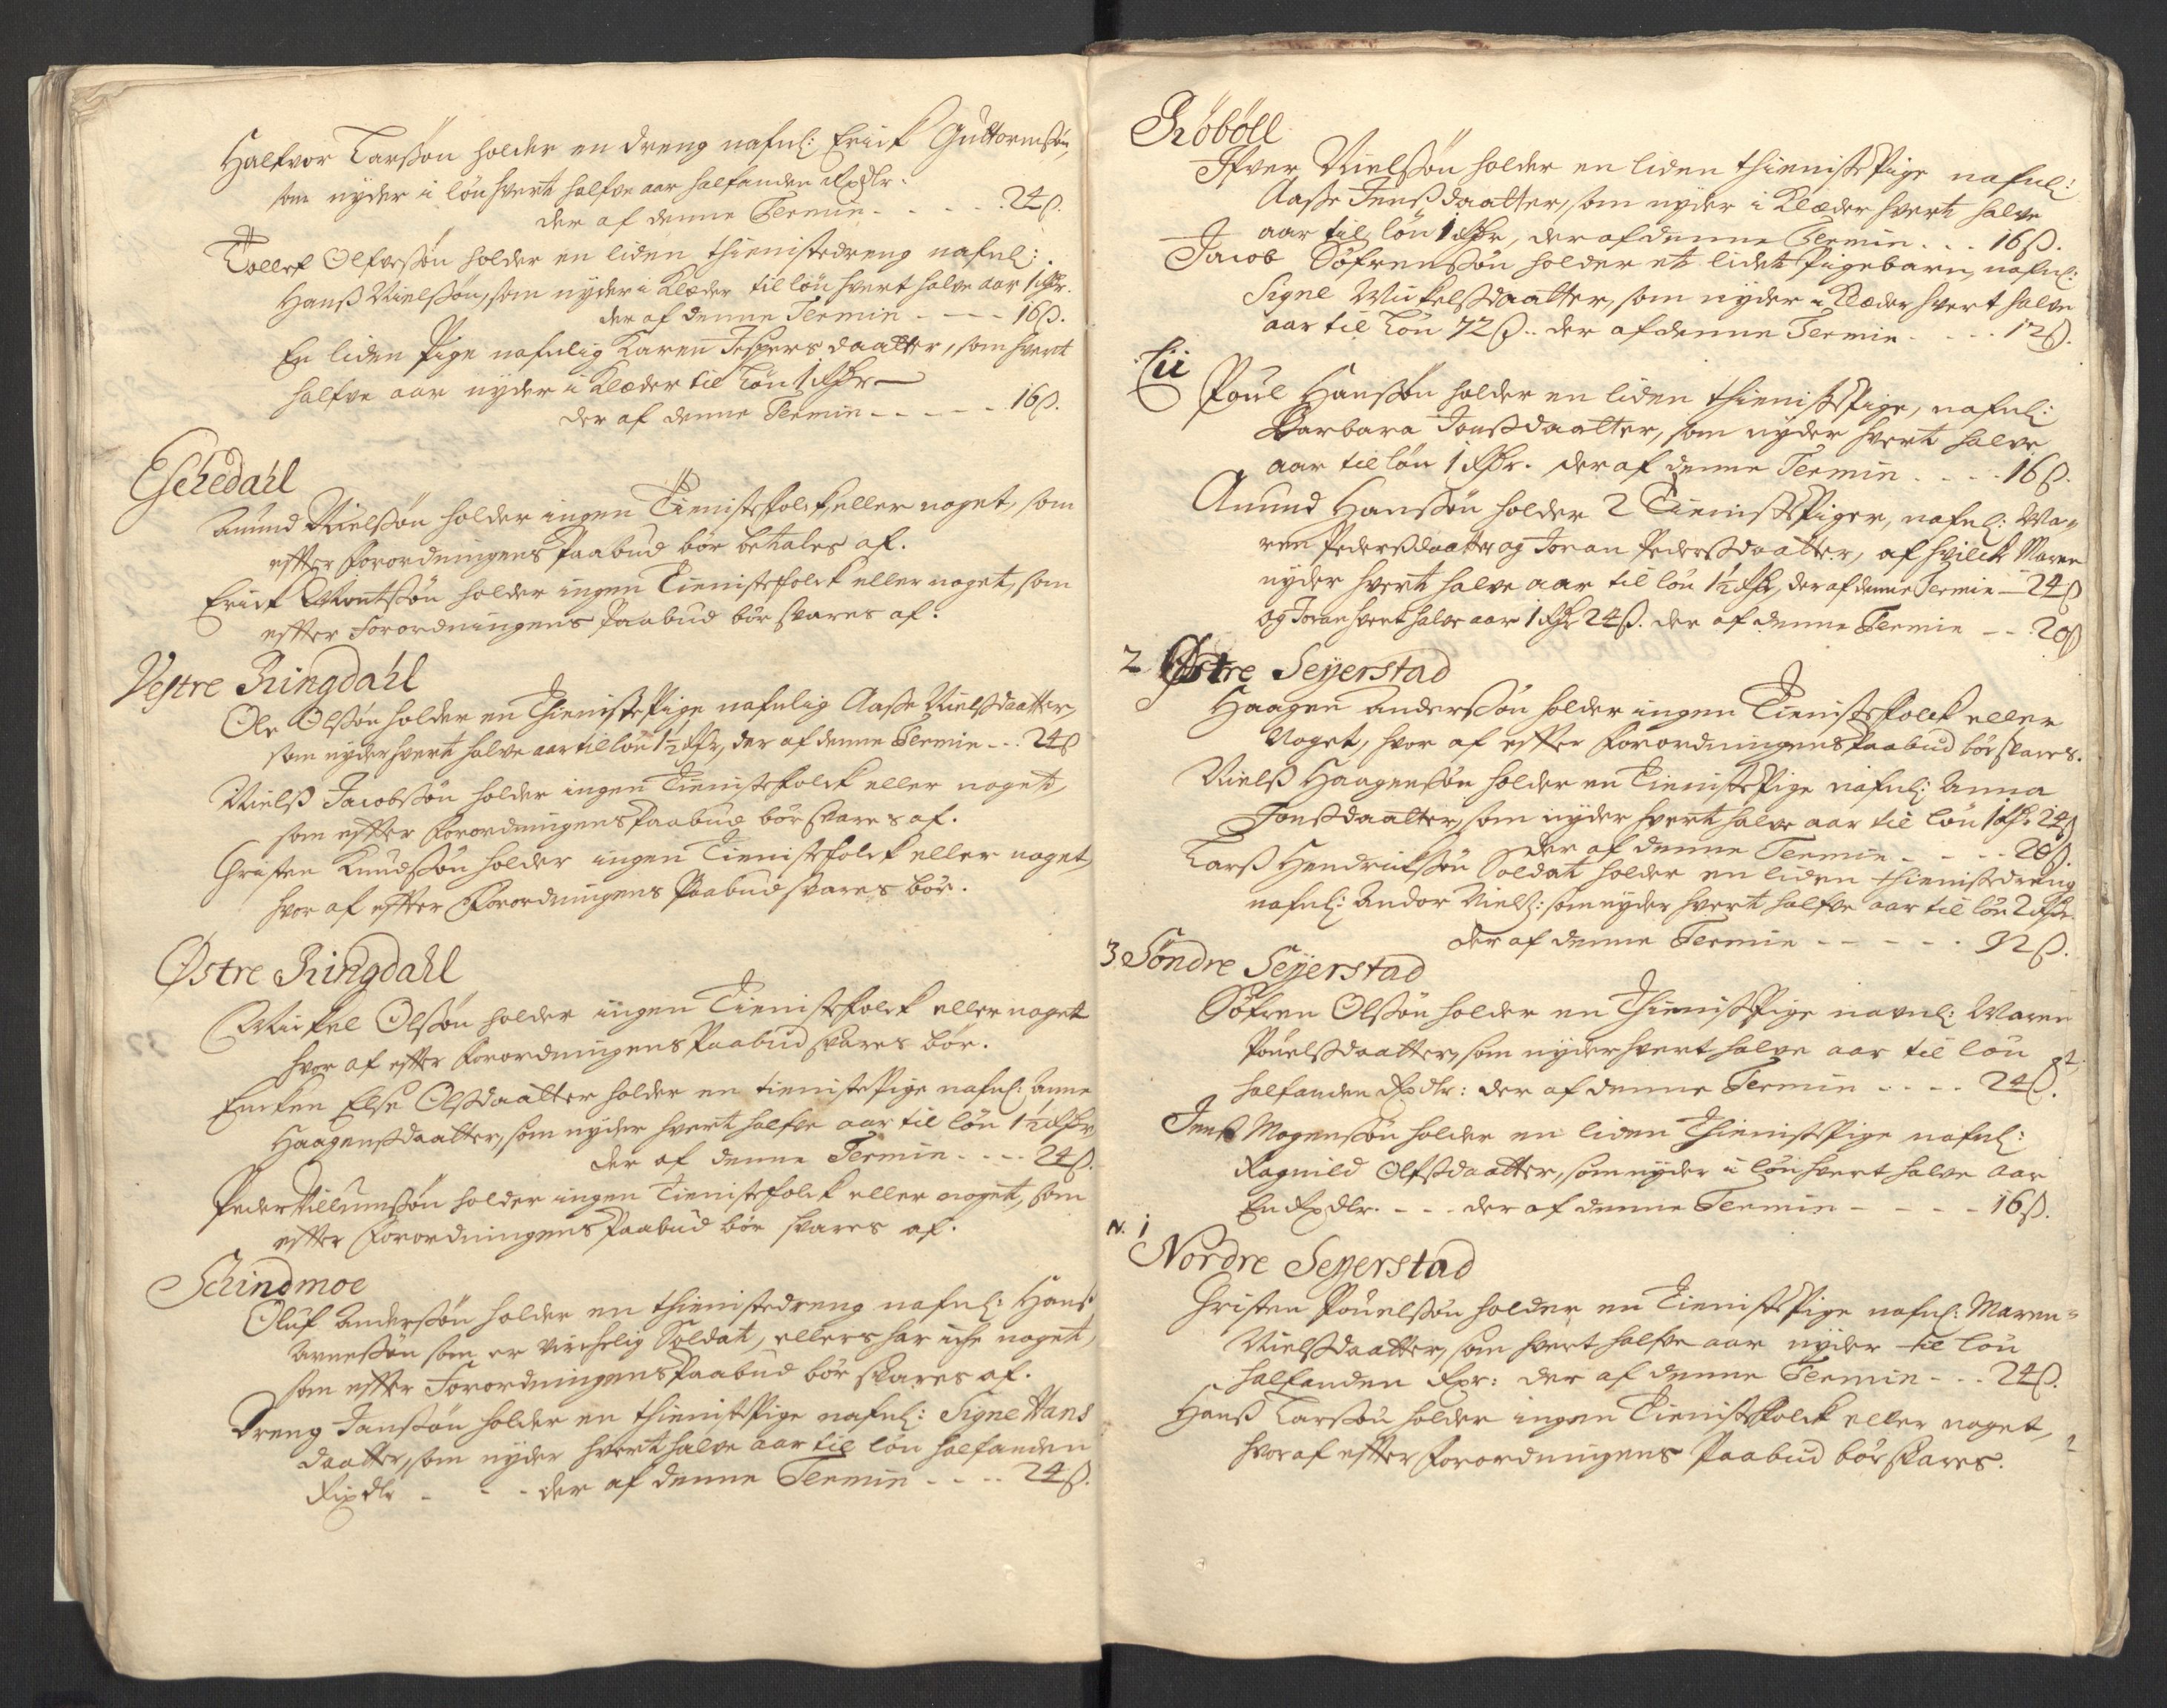 Halfvor Larssøn holder en dreng nafnl: Erick Guttormssøn,
som nyder i løn hvert halfve aar halfanden Rixdlr:
der af denne Termin - - - - 24 ß.
Tollef Olfvessøn holder en liden thienistedreng nafnl:
Hanß Nielssøn, som nyder i Klæder til løn hvert halve aar 1 Rdr.
der af denne Termin - - - 16 ß.
En liden Pige nafnlig Karen Jespersdaatter, som hvert
halfve aar nyder i Klæder til Løn 1 Rdr
der af denne Termin - - - - 16 ß.
Eschedahl
Amund Nielssøn holder ingen Tienistefolck eller noget, som
efter Forordningens Paabud bør betales af.
Erick Montssøn holder ingen Tienistefolck eller noget, som
efter Forordningens Paabud bør svares af.
Vestre Ringdahl
Ole Olssøn holder en Thieniste Pige nafnlig Aasse Nielsdaatter,
som nyder hvert halve aar til løn 1½ Rdr, der af denne Termin - - 24 ß
Nielß Jacobssøn holder ingen Tienistefolck eller noget,
som efter Forordningens Paabud bør svares af.
Christen Knudssøn holder ingen Tienistefolck eller noget,
hvor af efter Forordningens Paabud svares bør.
Østre Ringdahl
Mickel Olssøn holder ingen Tienistefolck eller noget
hvor af efter Forordningens Paabud svares bør.
Encken Else Olsdaatter holder en tieniste Pige nafnl: Anne
Haagensdaatter, som nyder hvert halfve aar til løn 1½ Rdr
der af denne Termin - - - 24 ß.
Peder Villumssøn holder ingen Tienistefolck eller noget, som
efter Forordningens Paabud bør svares af.
Schindmoe
Oluf Anderssøn holder en thienistedreng nafnl: Hans
Arnessøn som er virchelig Soldat, ellers har iche noget,
som efter Forordningens Paabud bør svares af.
Dreng Janssøn holder en thieniste Pige nafnl: Signe Hans
daatter, som nyder hvert halve aar til løn halfanden
Rixdlr - - - der af denne Termin - - - 24 ß.
Røbøll
Ifver Nielssøn holder en liden thieniste Pige nafnl:
Aasse Jensdaatter, som nyder i Klæder hvert halve
aar til løn 1 Rdr, der af denne Termin - - 16 ß.
Jacob Søfrenssøn holder et lidet Pigebarn, nafnl:
Signe Mickelsdaatter, som nyder i Klæder hvert halve
aar til Løn 72 ß. der af denne Termin - - - 12 ß.
Lii
Poul Hanssøn holder en liden thieniste Pige, nafnl:
Barbara Jonsdaatter, som nyder hvert halve
aar til løn 1 Rdr. der af denne Termin - - - 16 ß.
Amund Hanssøn holder 2 Tieniste Piger, nafnl: Ma-
ren Pedersdaatter og Joran Pedersdaatter, af hvilcke Maren
nyder hvert halve aar til løn 1½ Rdr, der af denne Termin - 24 ß
og Joran hvert halve aar 1 Rdr 24 ß. der af denne Termin - - 20 ß
2 Østre Seyerstad
Haagen Anderssøn holder ingen Tienistefolck eller
Noget, hvor af efter Forordningens Paabud bør svares.
Nielß Haagenssøn holder en Tieniste Pige nafnl: Anna
Jonsdaatter, som nyder hvert halve aar til løn 1 Rdr 24 ß
der af denne Termin - - - - 20 ß.
Larß Hendrickssøn Soldat holder en liden thienistedreng
nafnl: Andor Nielß: som nyder hvert halfve aar til løn 2 Rdr.
der af denne Termin - - - - - 32 ß.
3 Søndre Seyerstad
Søfren Olssøn holder en Thieniste Pige navnl: Maren
Pouelsdaatter, som nyder hvert halve aar til løn
halfanden Rixdlr: der af denne Termin - - - - 24 ß.
Jens Mogenssøn holder en liden Thieniste Pige nafnl:
Ragnild Olfsdaatter, som nyder i løn hvert halve aar
En Rixdlr. - - - der af denne Termin - - - - 16 ß.
N. 1
Nordre Seyerstad
Christen Pouelssøn holder en Tieniste Pige nafnl: Maren
Nielsdaatter, som hvert halfve aar nyder til løn
halfanden Rixr: der af denne Termin - - - 24 ß.
Hanß Larssøn holder ingen Tienistefolck eller noget,
hvor af efter Forordningens Paabud bør svares.